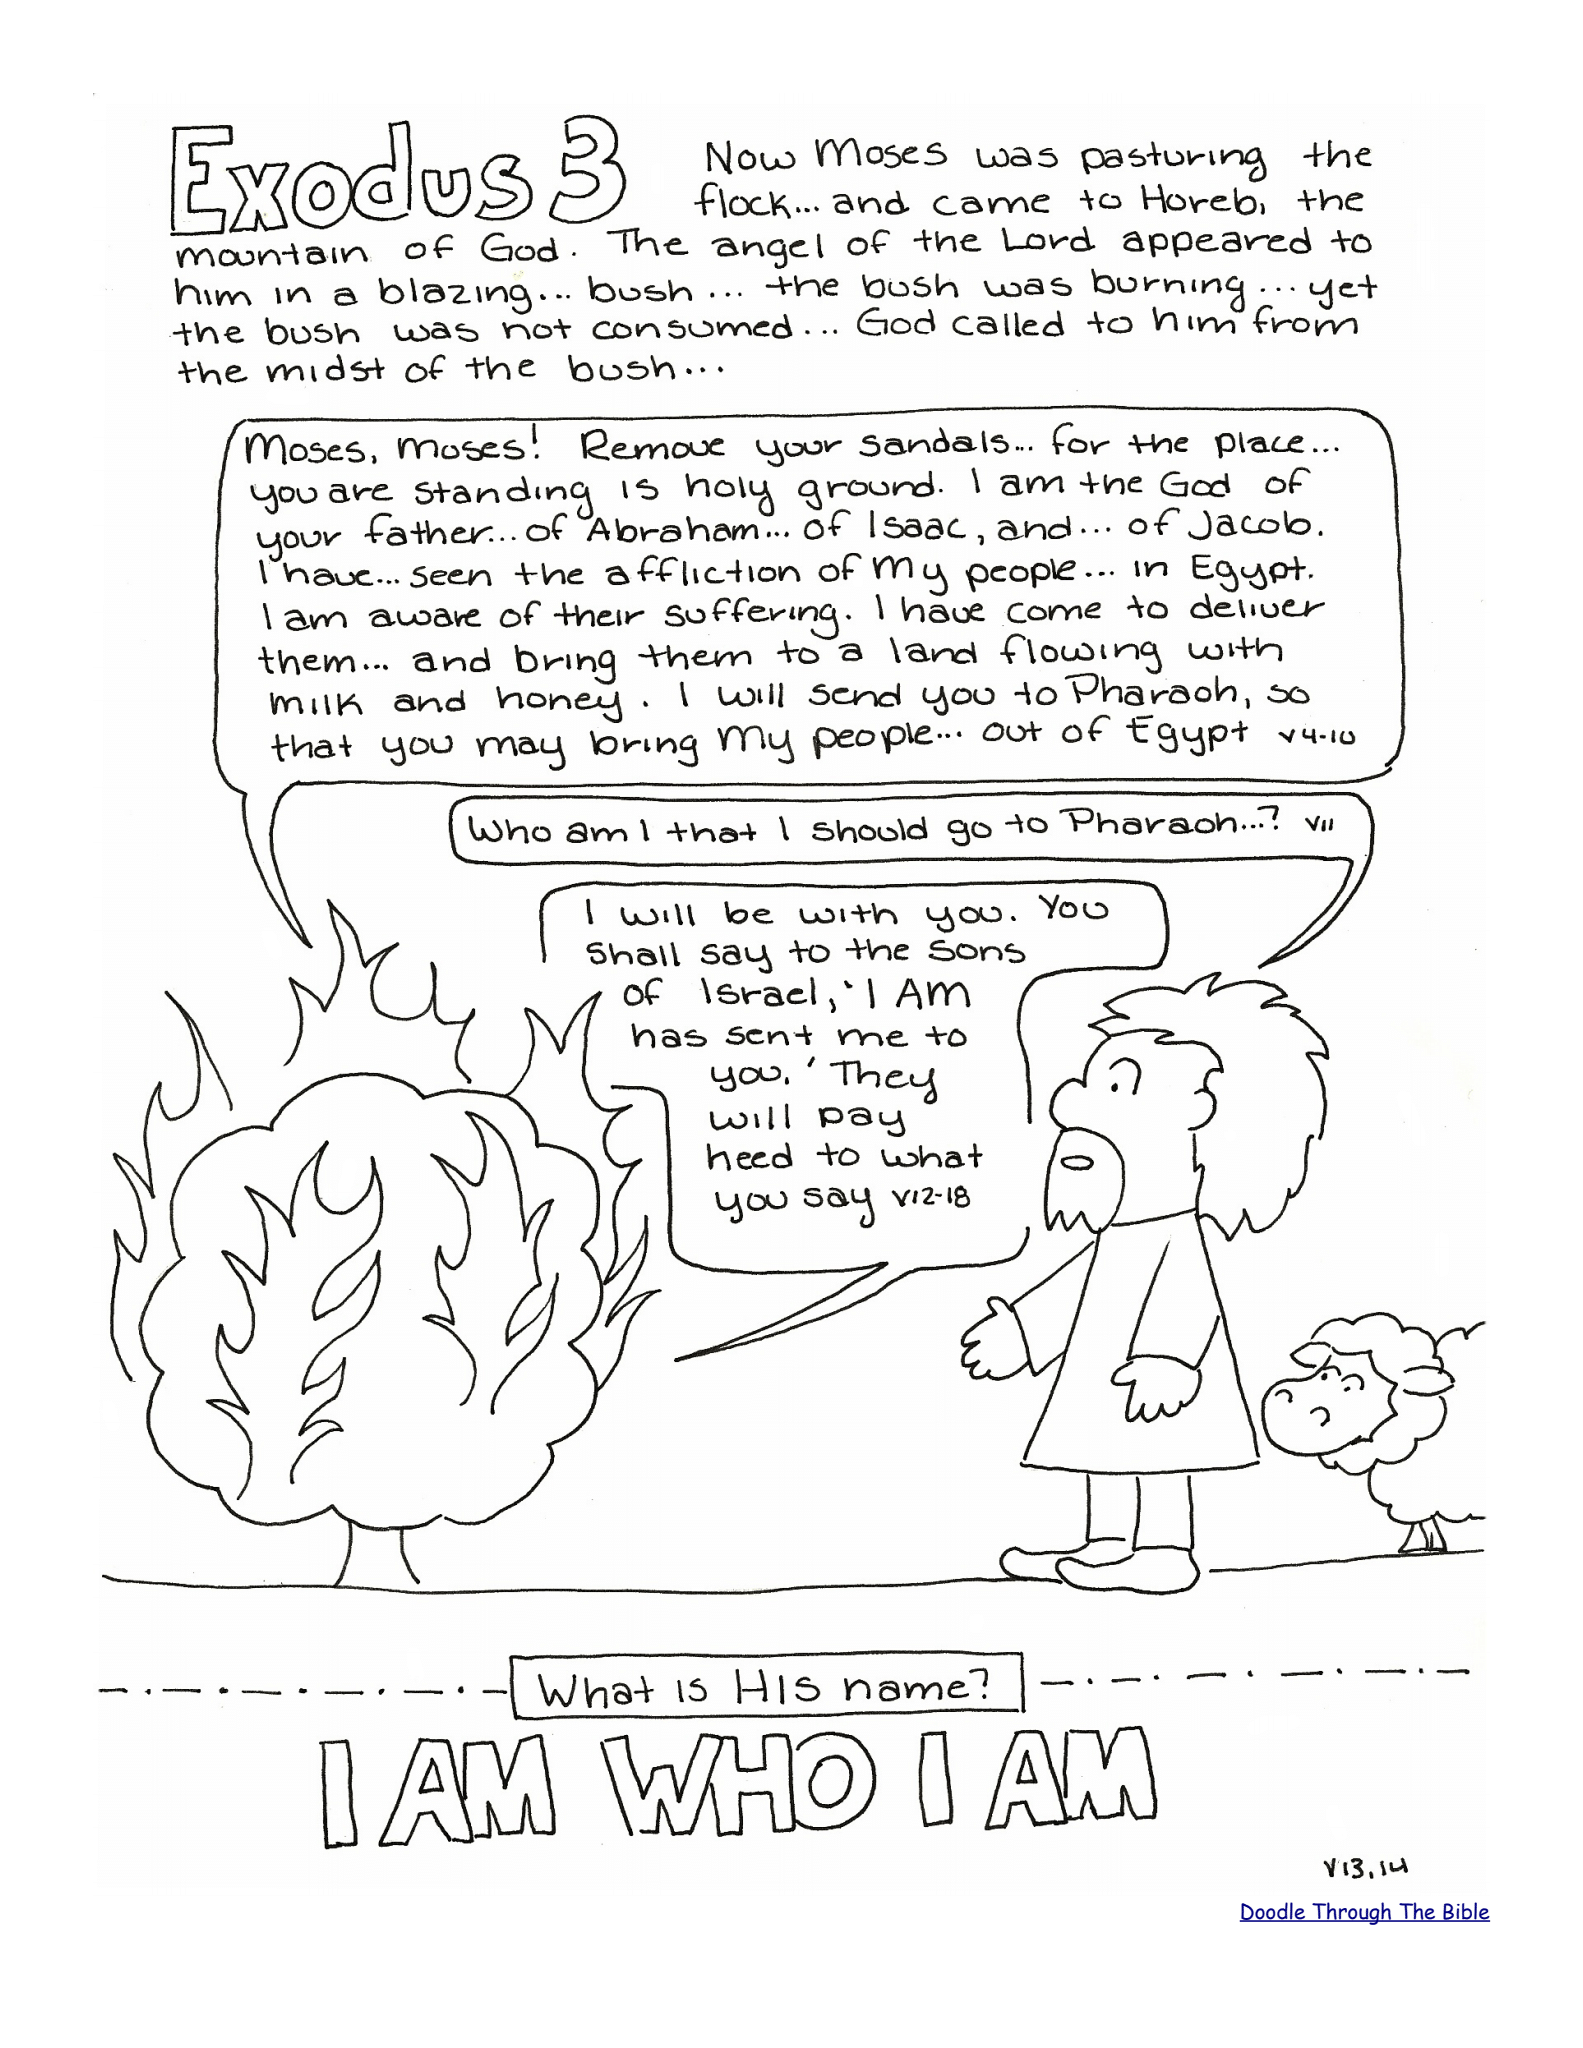 Exodus 3
Now Moses was pasturing the
flock... and came to Horeb, the
mountain of God. The angel of the Lord appeared to
him in a blazing... bush... the bush was burning... yet
the bush was not consumed... God called to him from
the midst of the bush...
Moses, Moses! Remove your sandals... for the place...
you are standing is holy ground. I am the God of
your father... of Abraham... of Isaac, and... of Jacob.
I have... seen the affliction of My people... in Egypt.
I am aware of their suffering. I have come to deliver
them... and bring them to a land flowing with
milk and honey. I will send you to Pharaoh, so
that you may bring My people... out of Egypt v4-10
Who am I that I should go to Pharaoh...? v11
I will be with you. You
shall say to the sons
of Israel, 'I AM
has sent me to
you.' They
will pay
heed to what
you say v12-18
What is HIS name?
I AM WHO I AM
v13,14
Doodle Through The Bible